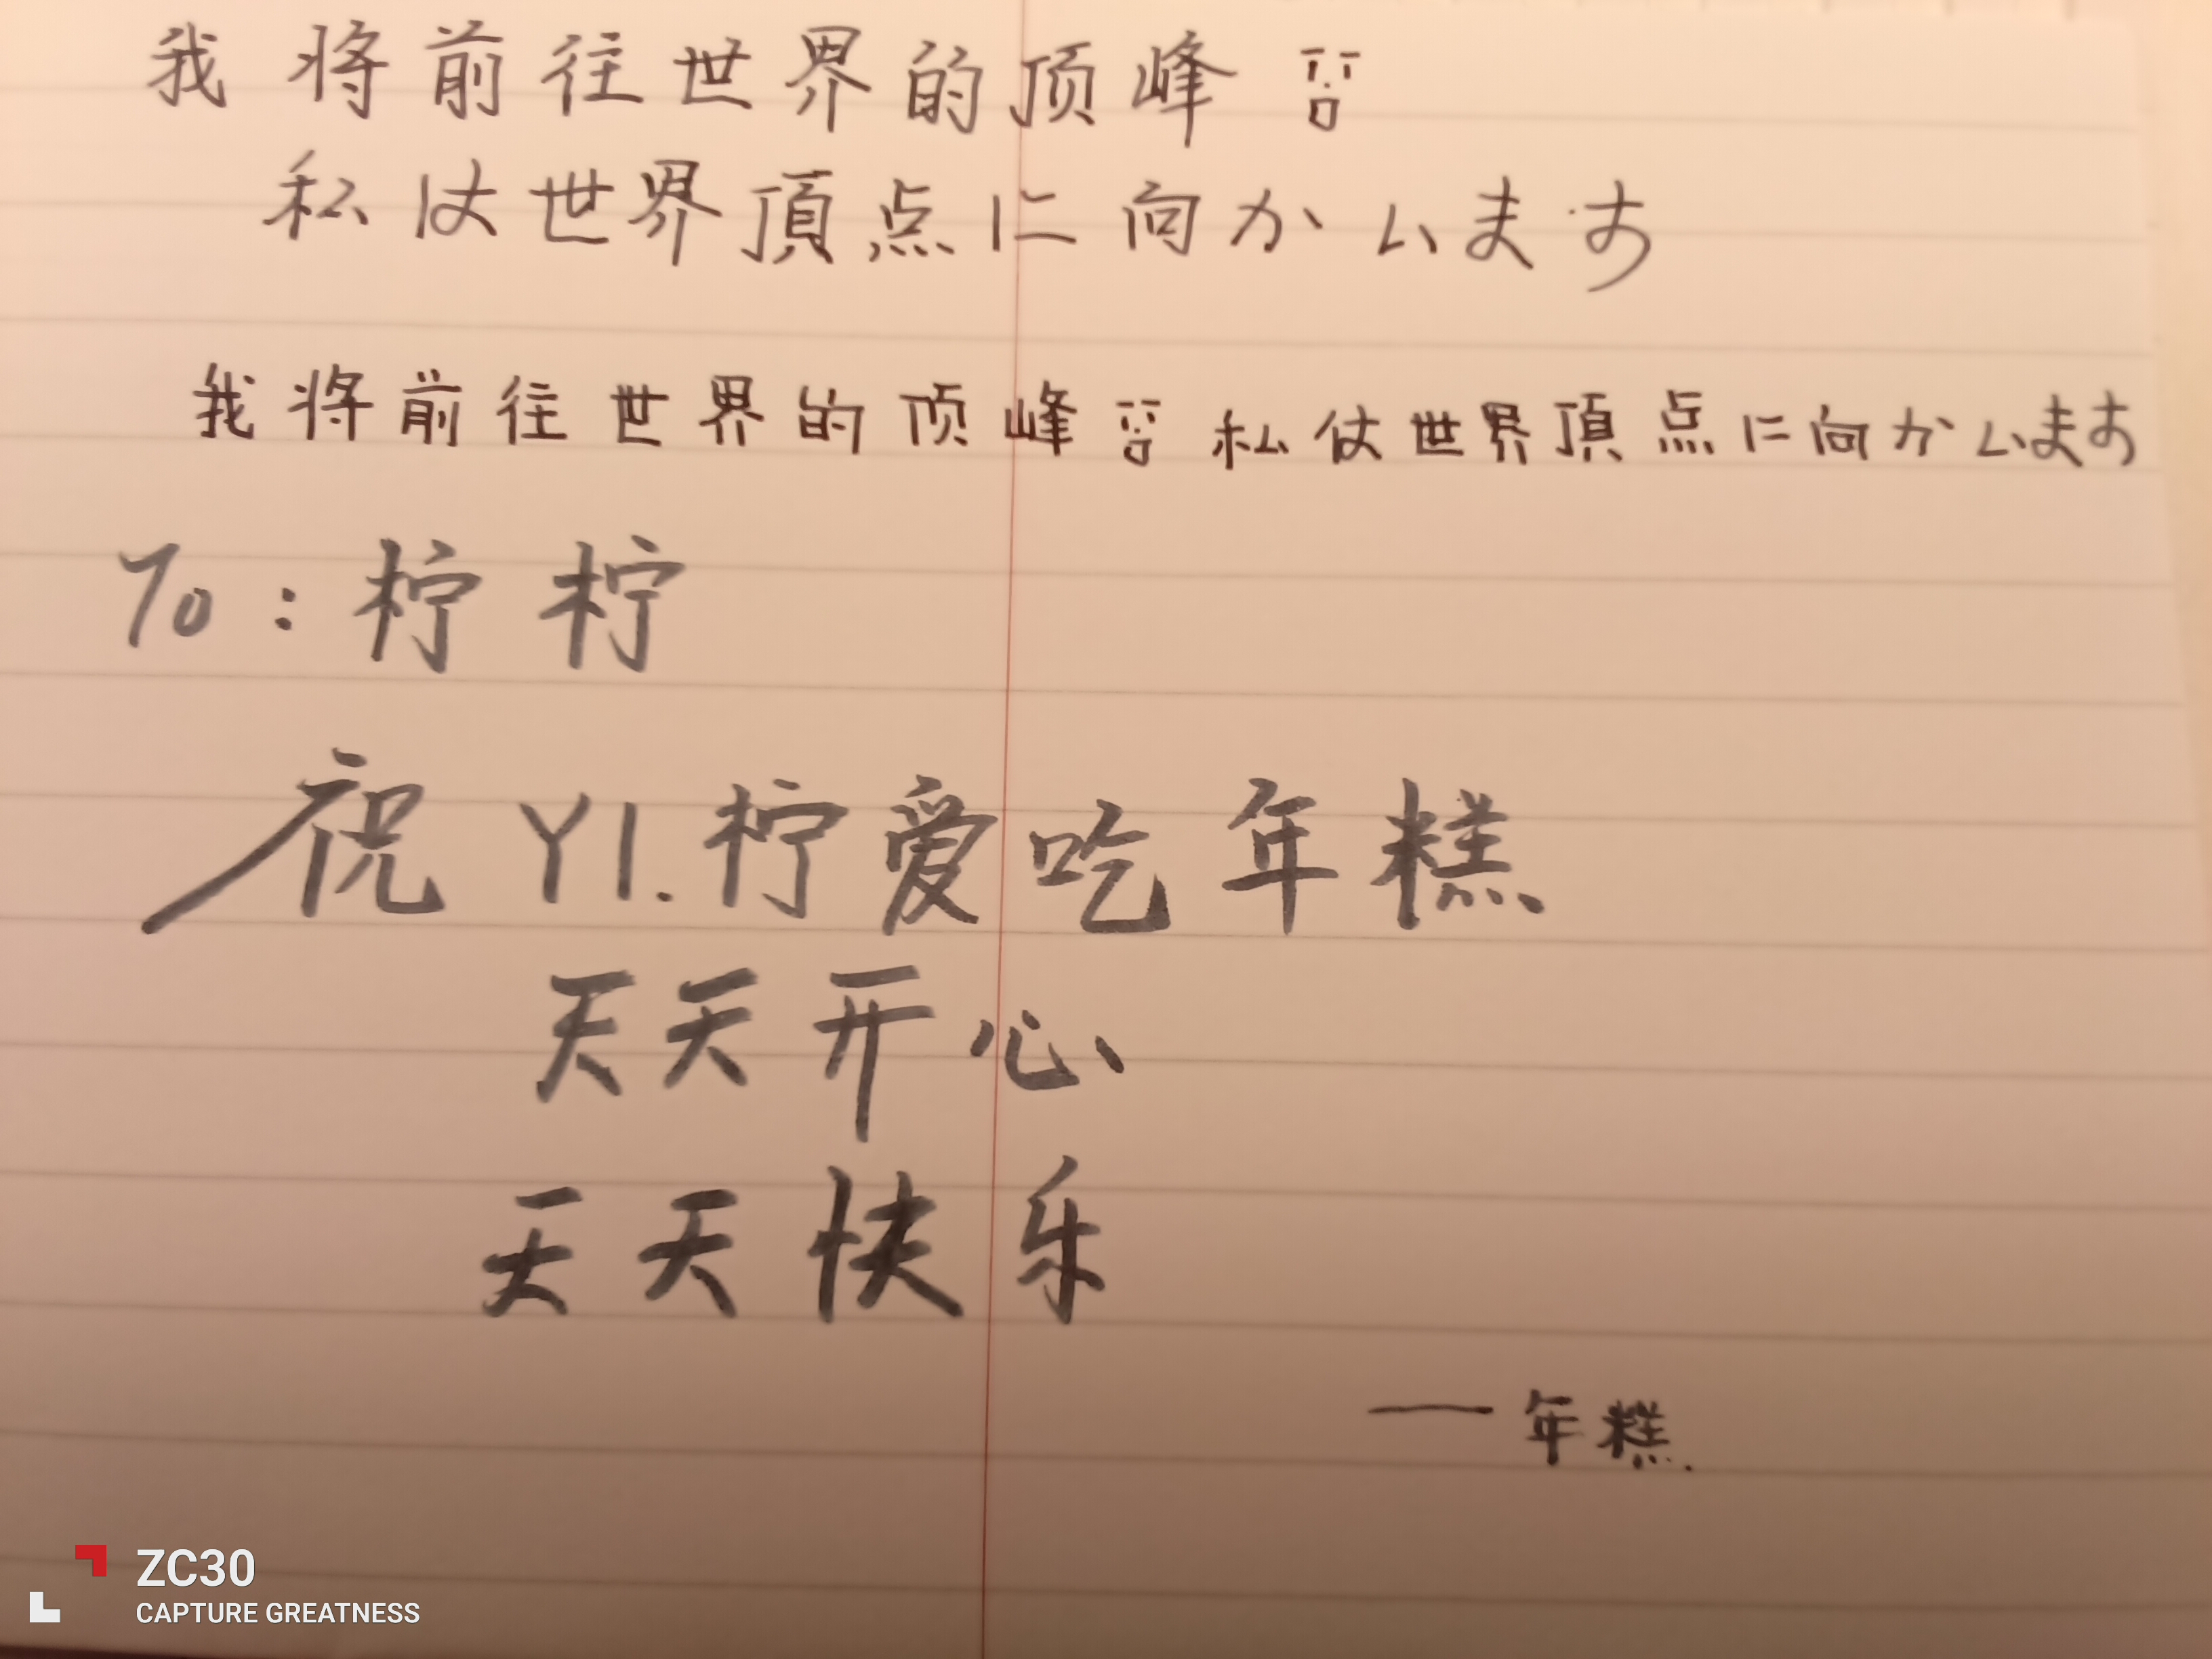 我将前往世界的顶峰
私は世界頂点に向かいます
我将前往世界的顶峰 私は世界頂点に向かいます
To：柠柠
祝 YI.柠爱吃年糕
天天开心
天天快乐
——年糕.
ZC30
CAPTURE GREATNESS